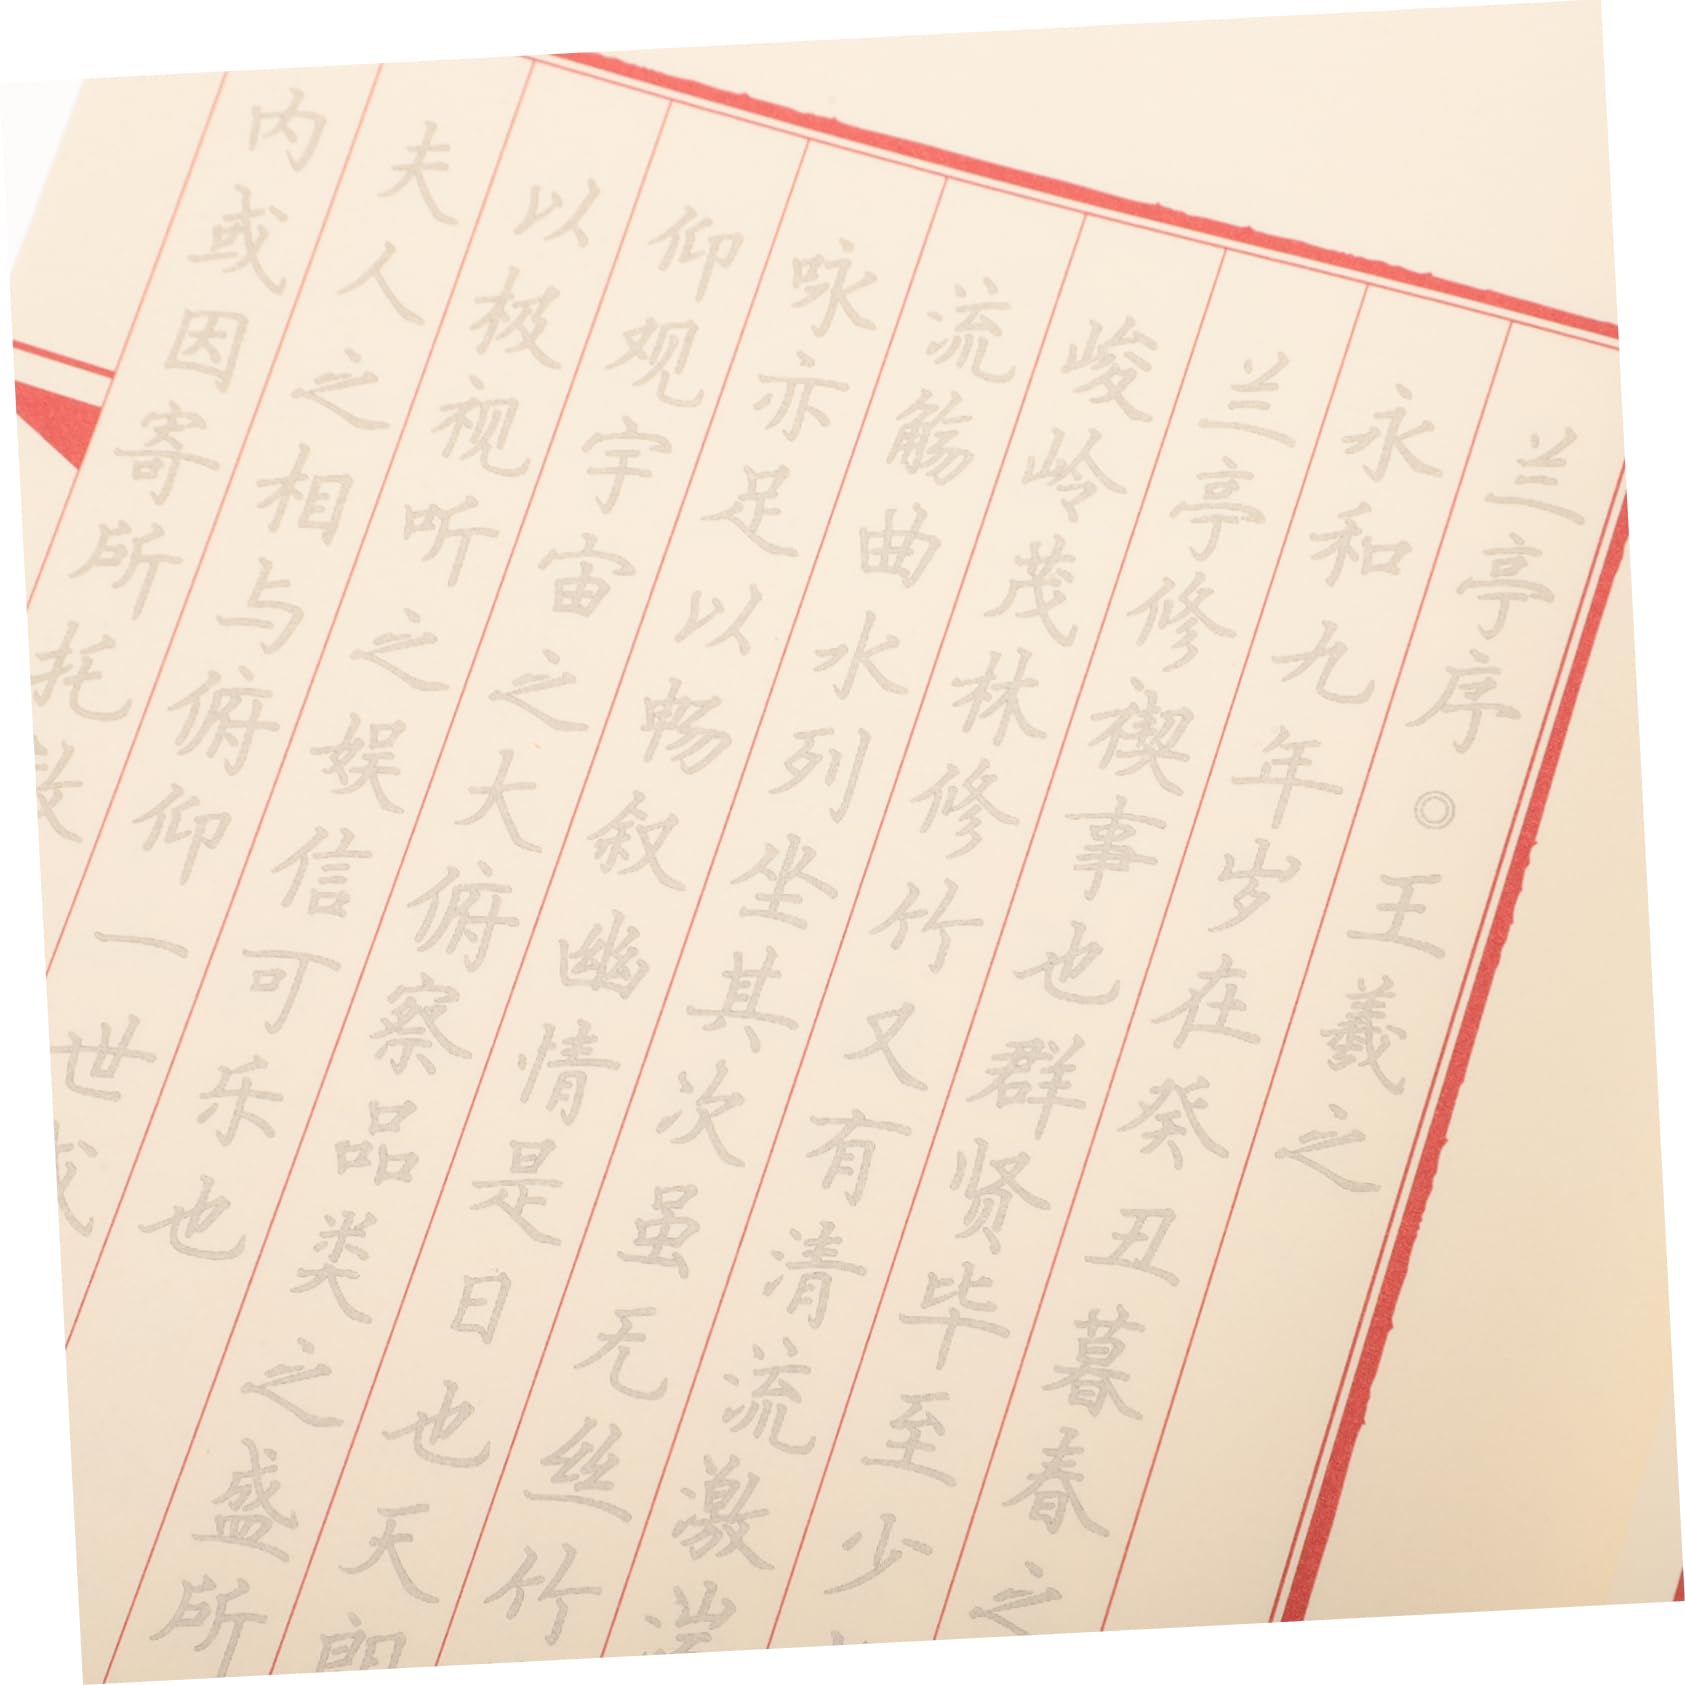 兰亭序◎王羲之
永和九年岁在癸丑暮春之
兰亭修禊事也群贤毕至少
峻岭茂林修竹又有清流激湍
流觞曲水列坐其次虽无丝竹
咏亦足以畅叙幽情是日也天朗
仰观宇宙之大俯察品类之盛所
以极视听之娱信可乐也
夫人之相与俯仰一世或
内或因寄所托放